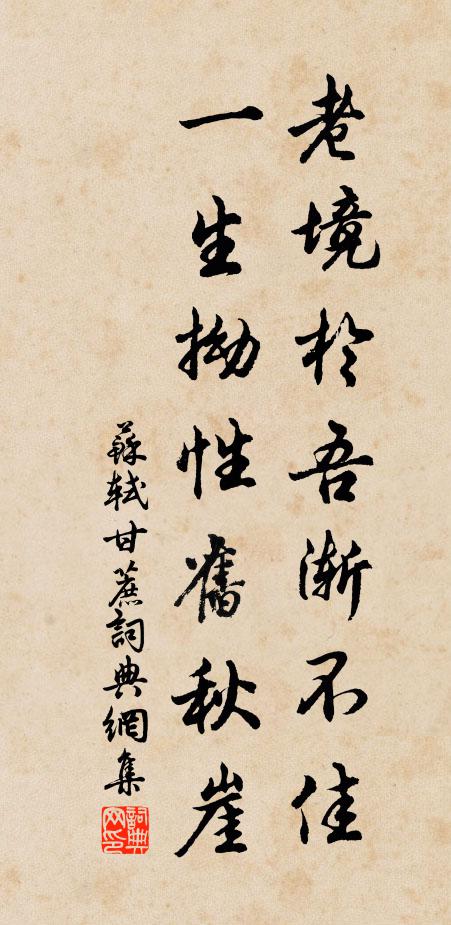 老境於吾漸不佳
一生拗性舊秋崖
蘇軾甘蔗詞典網集
詞典网印